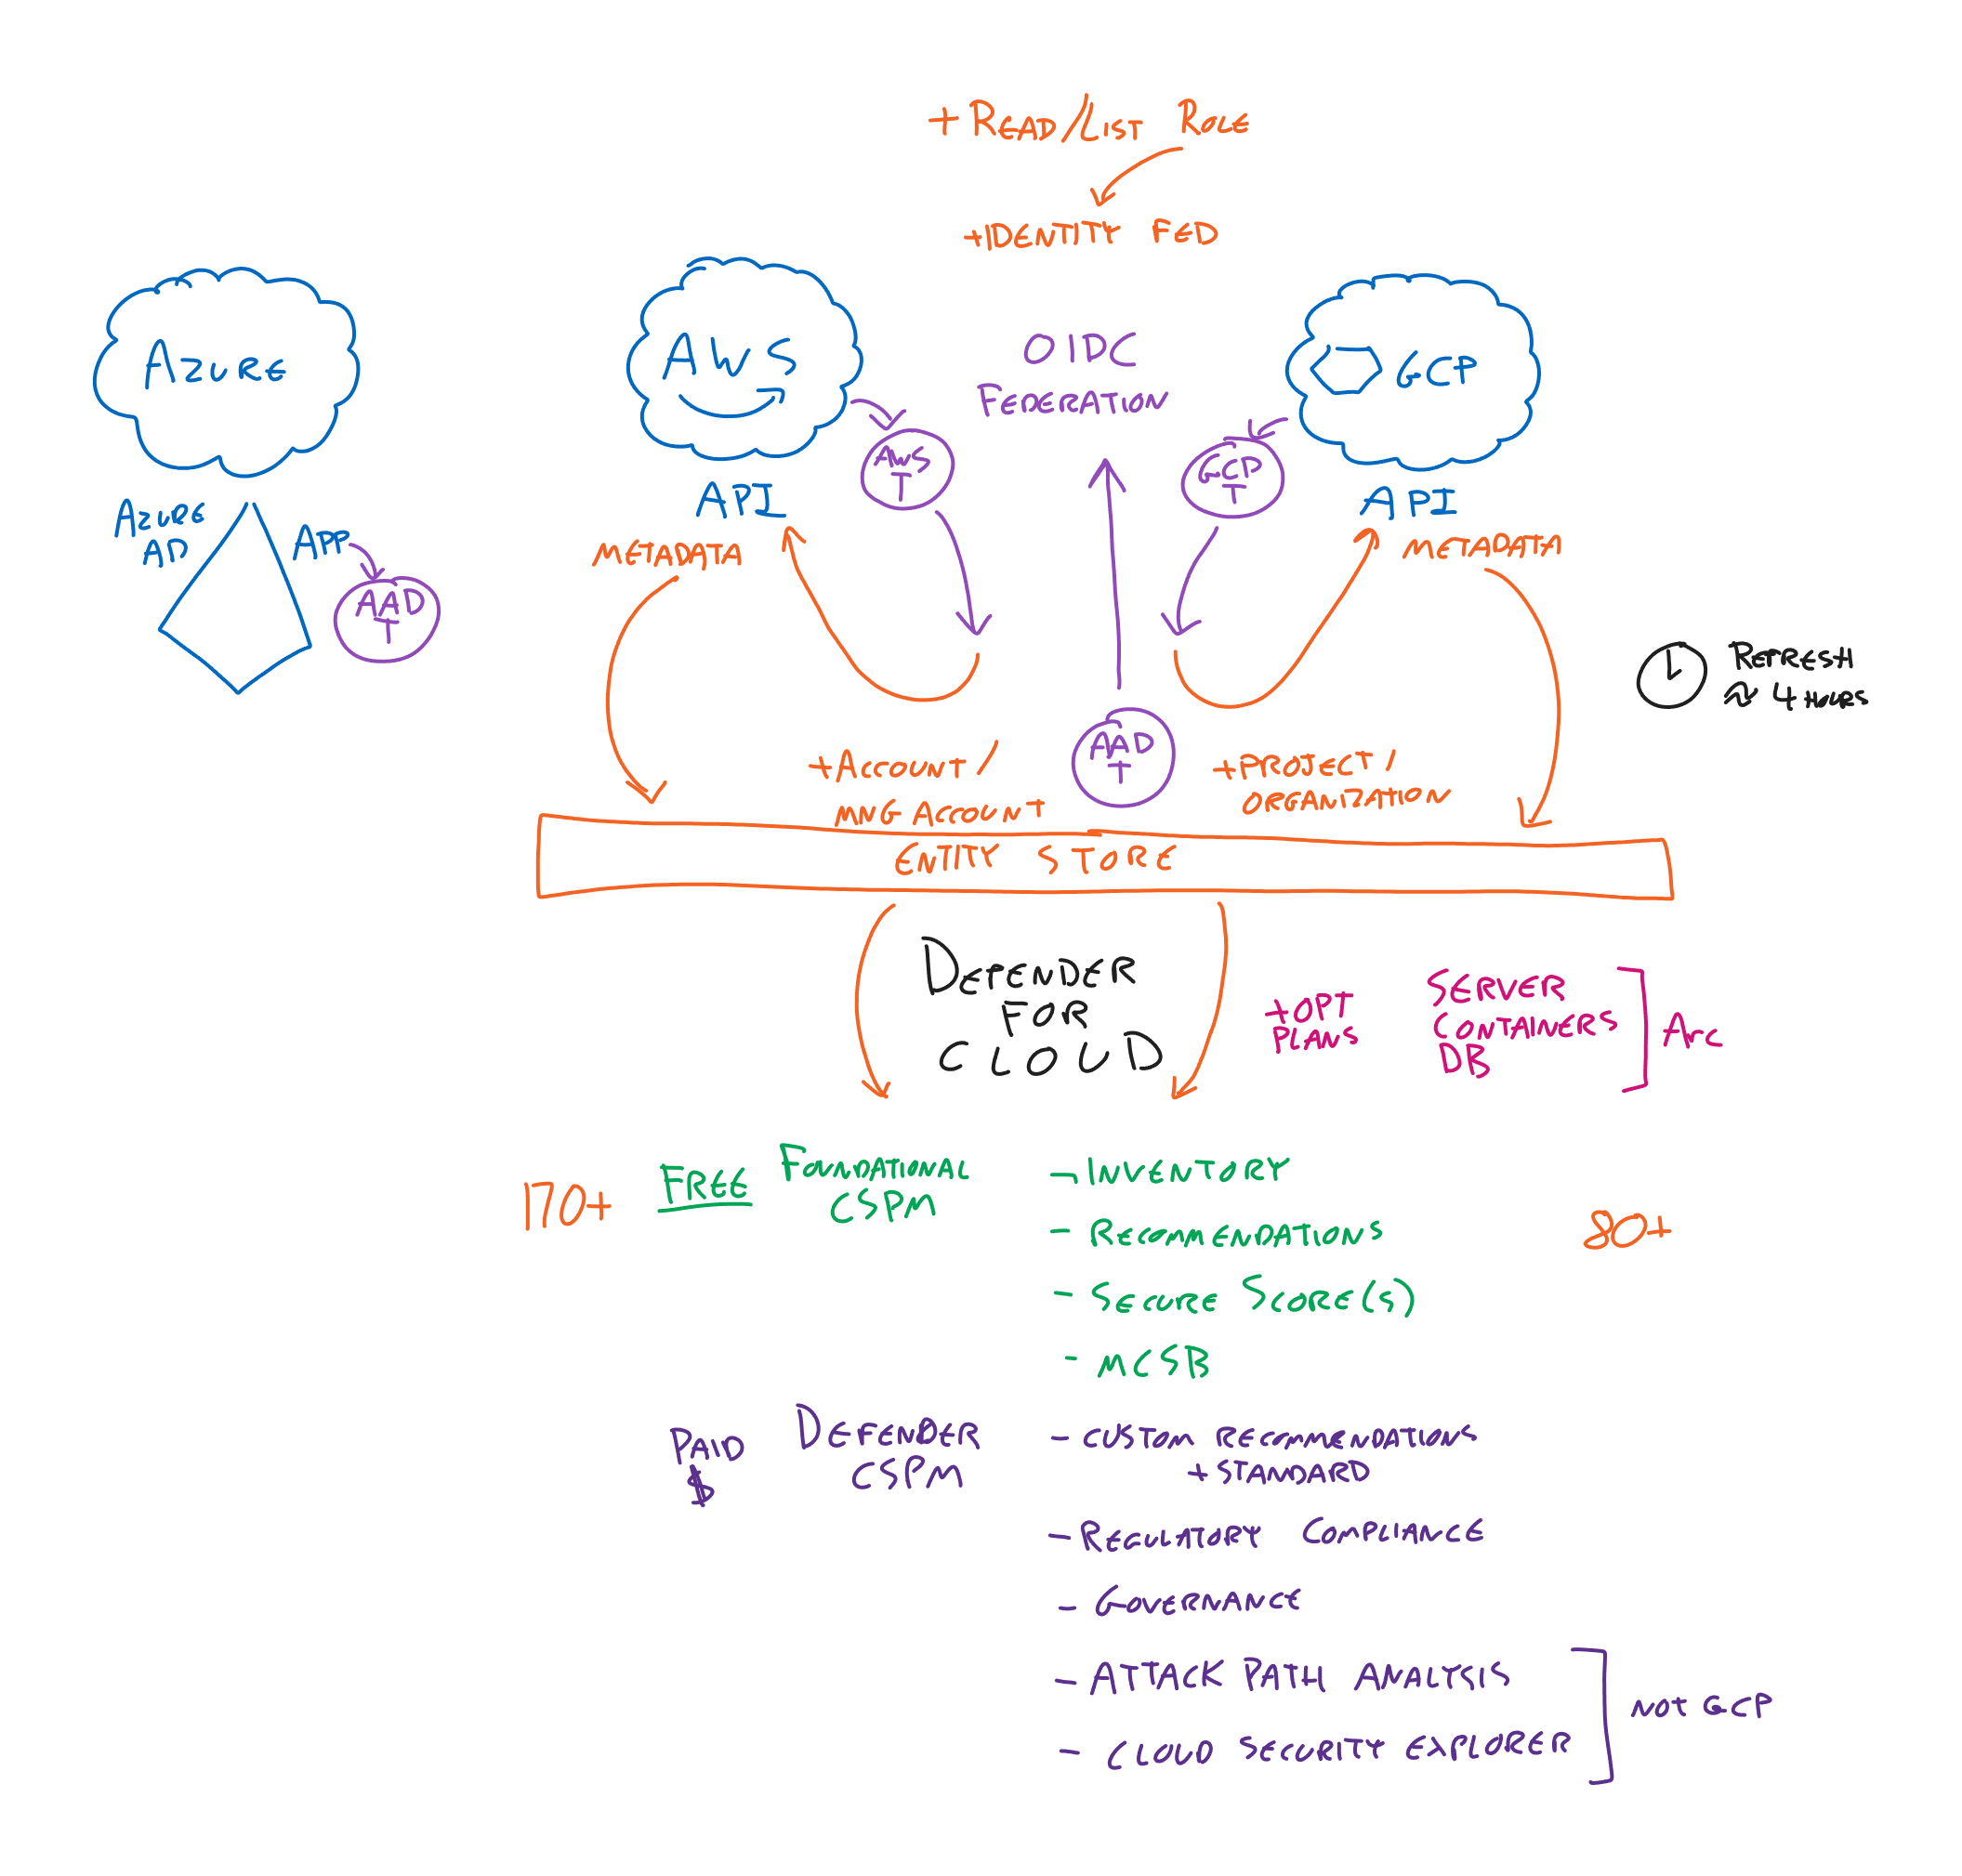 + READ/LIST ROLE
+IDENTITY FED
AZURE
AWS
OIDC
FEDERATION
GCP
AWS
T
GCP
T
API
API
AZURE
AD
APP
METADATA
METADATA
AAD
T
REFRESH
≈ 4 HOURS
AAD
T
+ACCOUNT /
MNG ACCOUNT
+PROJECT /
ORGANIZATION
ENTITY STORE
DEFENDER
FOR
CLOUD
+OPT
PLANS
SERVER
CONTAINERS
DB
ARC
170+
FREE
FOUNDATIONAL
CSPM
- INVENTORY
- RECOMMENDATIONS
80+
- SECURE SCORE(S)
- MCSB
PAID
$
DEFENDER
CSPM
- CUSTOM RECOMMENDATIONS
+ STANDARD
- REGULATORY COMPLIANCE
- GOVERNANCE
- ATTACK PATH ANALYSIS
- CLOUD SECURITY EXPLORER
NOT GCP